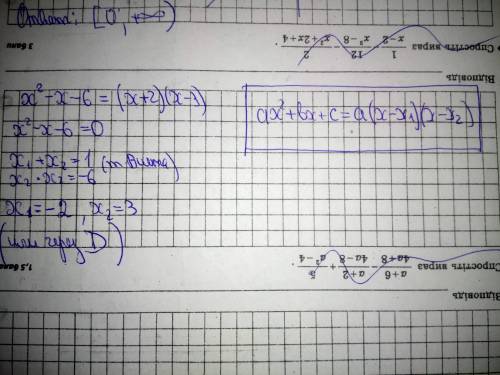 Ответ: [0; +∞)
3 бали
Спростіть вираз 1/(x-2) - 12/(x³-8) - 2/(x²+2x+4).
Відповідь
x²-x-6=(x+2)(x-3)
x²-x-6=0
x₁+x₂=1 (т Виета)
x₂·x₂=-6
x₁=-2, x₂=3
(или через D)
ax²+bx+c=a(x-x₁)(x-x₂)
1,5 бали
Спростіть вираз (a+6)/(4a+8) - (a+2)/(4a-8) + 5/(a²-4).
Відповідь